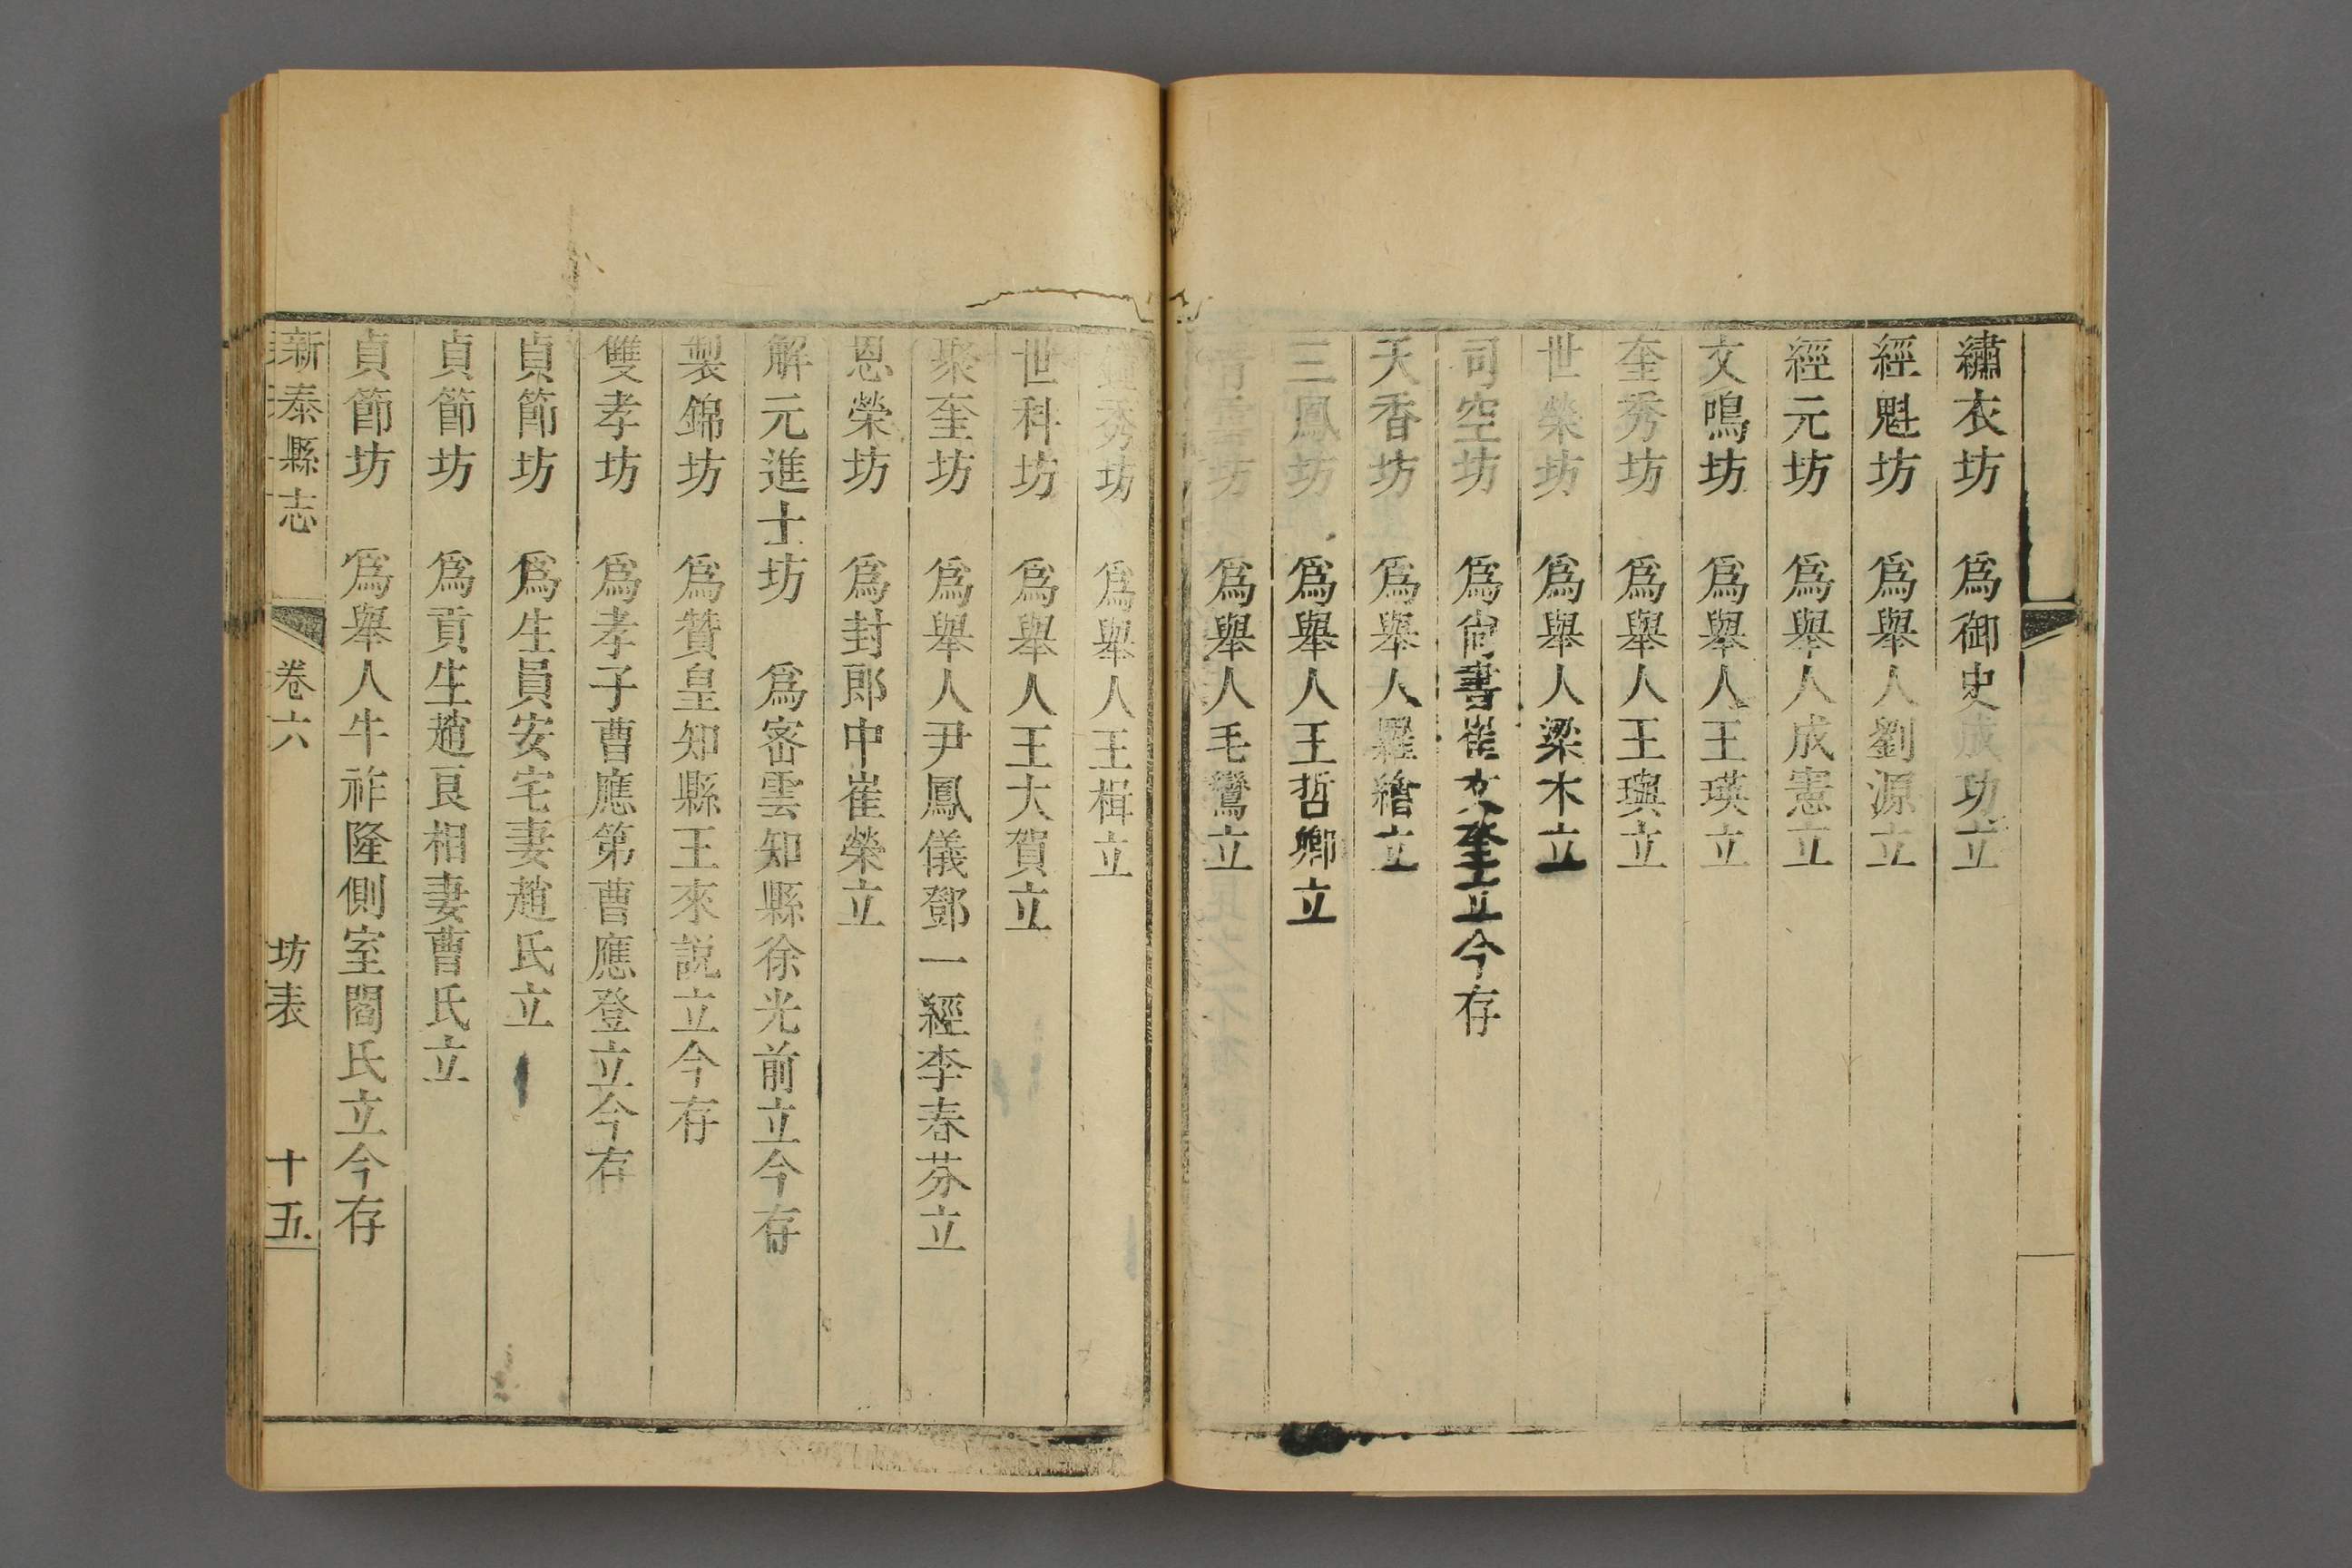 繡衣坊　爲御史成功立
經魁坊　爲舉人劉源立
經元坊　爲舉人成憲立
文鳴坊　爲舉人王瑛立
奎秀坊　爲舉人王璵立
世榮坊　爲舉人梁木立
司空坊　爲尙書崔文奎立今存
天香坊　爲舉人羅繪立
三鳳坊　爲舉人王哲卿立
坊　爲舉人毛鸞立
秀坊　爲舉人王楫立
世科坊　爲舉人王大賀立
聚奎坊　爲舉人尹鳳儀鄧一經李春芬立
恩榮坊　爲封郎中崔榮立
解元進士坊　爲密雲知縣徐光前立今存
製錦坊　爲贊皇知縣王來說立今存
雙孝坊　爲孝子曹應第曹應登立今存
貞節坊　爲生員安宅妻趙氏立
貞節坊　爲貢生趙良相妻曹氏立
貞節坊　爲舉人牛祚隆側室閻氏立今存
新泰縣志　卷六　坊表　十五